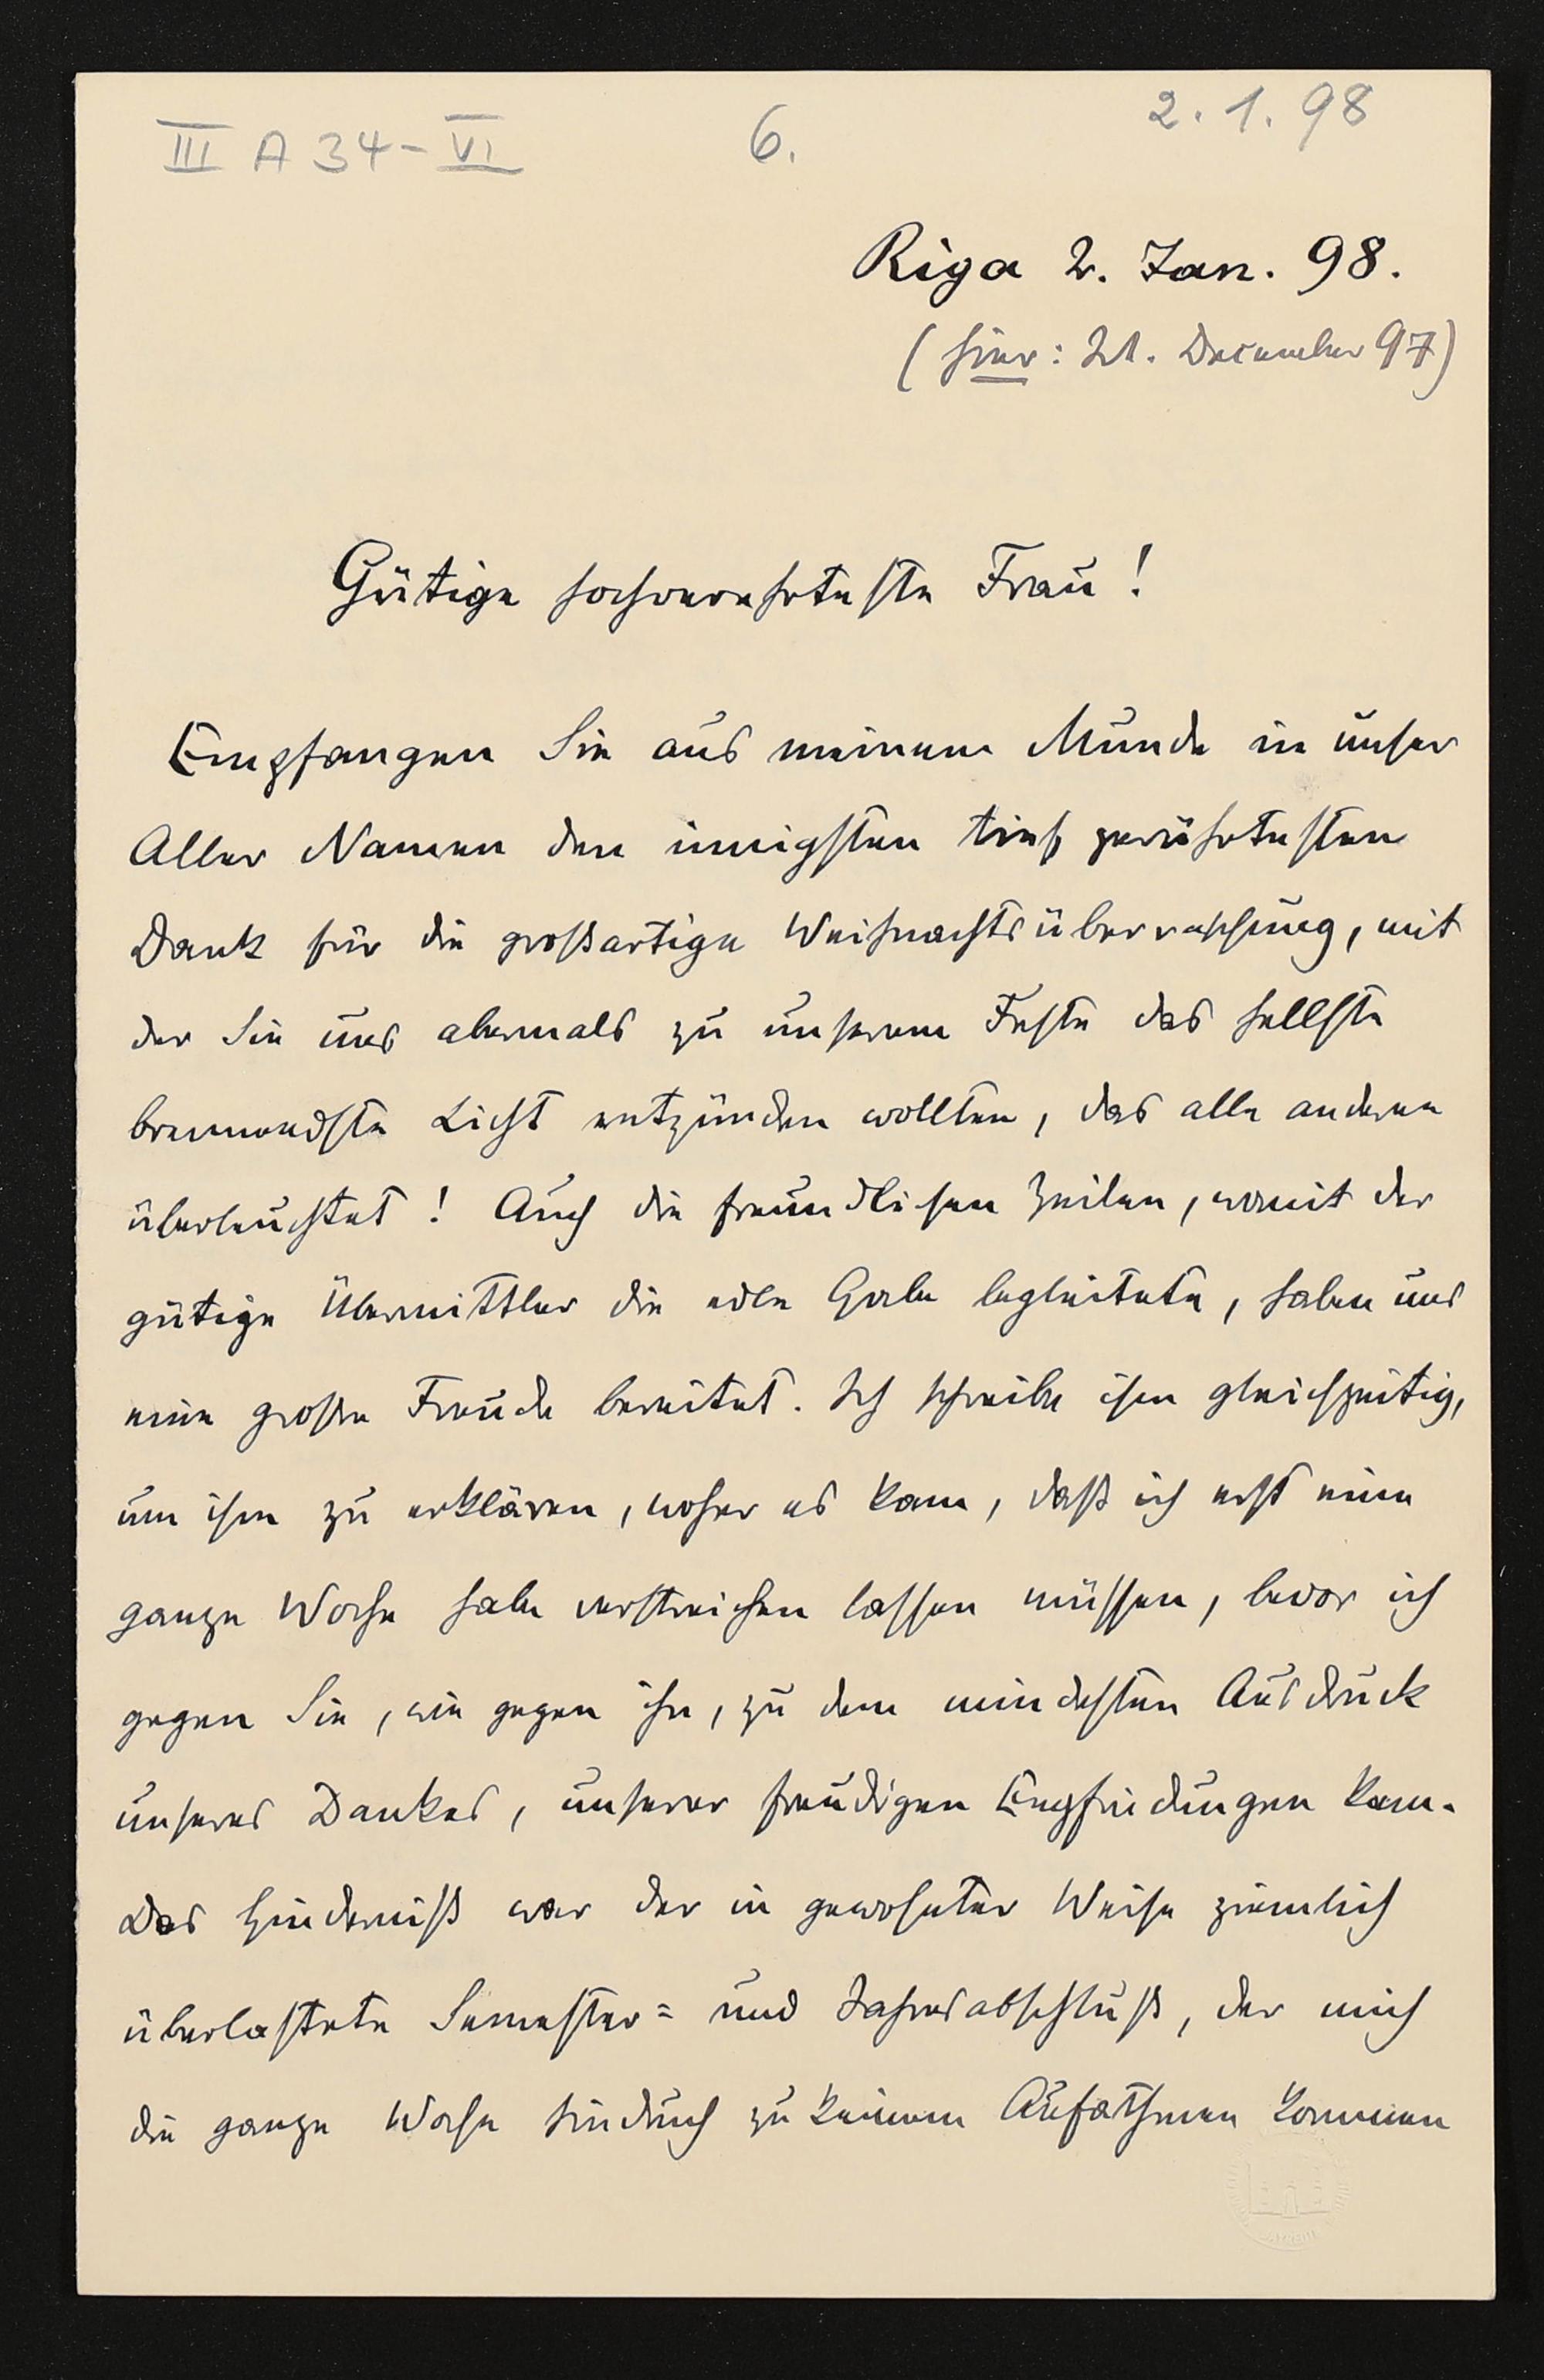 III A 34-VI
6.
2. 1. 98
Riga 2. Jan. 98.
(hier: 21. December 97)
Gütige hochverehrteste Frau!
Empfangen Sie aus meinem Munde in unser
Aller Namen den innigsten tief gerührtesten
Dank für die großartige Weihnachtsüberraschung, mit
der Sie uns abermals zu unserem Feste das hellste
brennendste Licht entzünden wollten, das alle anderen
überleuchtet! Auch die freundlichen Zeilen, womit der
gütige Übermittler die edle Gabe begleitete, haben uns
eine große Freude bereitet. Ich schreibe ihm gleichzeitig,
um ihm zu erklären, woher es kam, daß ich erst eine
ganze Woche habe verstreichen lassen müssen, bevor ich
gegen Sie, wie gegen ihn, zu dem mindesten Ausdruck
unseres Dankes, unserer freudigen Empfindungen kam.
Das Hinderniß war der in gewohnter Weise ziemlich
überlastete Semester= und Jahresabschluß, der mich
die ganze Woche hindurch zu keinem Aufathmen kommen